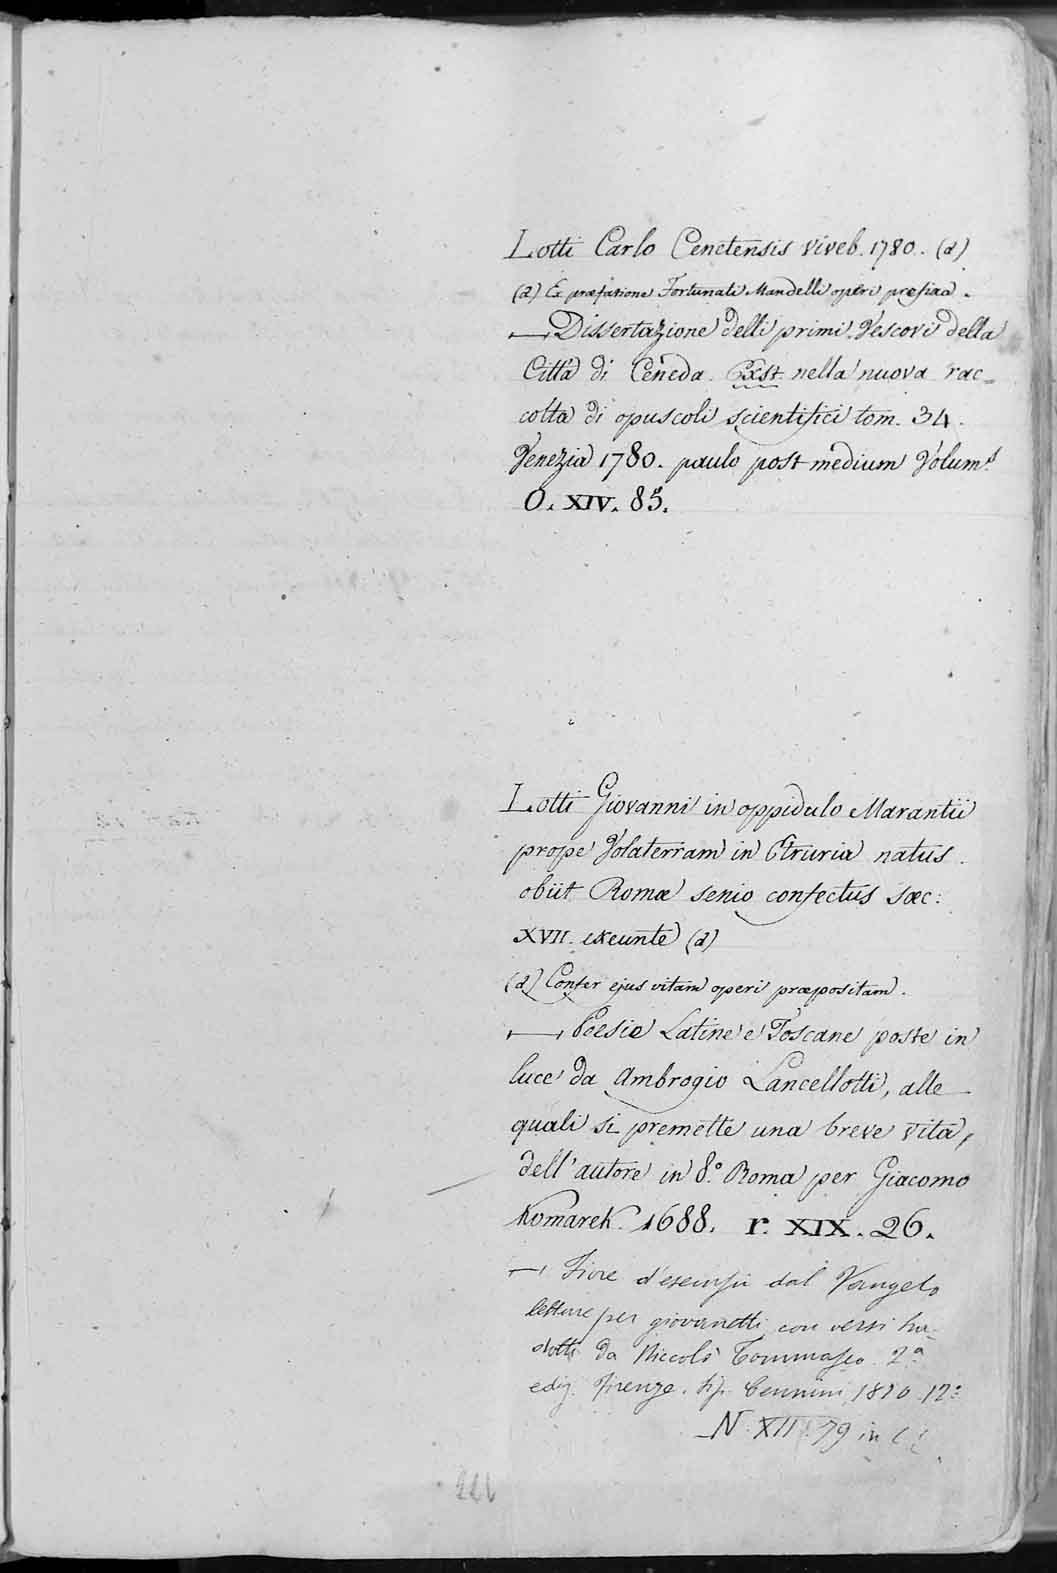 Lotti Carlo Cenetensis viveb. 1780. (a)
(a) Ex præfatione Fortunati Mandelli operi prefixa.
— Dissertazione delli primi Vescovi della
Città di Ceneda. Exst. nella nuova rac=
colta di opuscoli scientifici tom. 34.
Venezia 1780. paulo post medium Volum.s
O. XIV. 85.
Lotti Giovanni in oppidulo Marantii
prope Volaterram in Etruria natus.
obiit Romæ senio confectus sæc:
XVII. exeunte (a)
(a) Confer ejus vitam operi præpositam.
— Poesie Latine e Toscane poste in
luce da Ambrogio Lancellotti, alle
quali si premette una breve vita,
dell'autore in 8.° Roma per Giacomo
Komarek. 1688. r. XIX. 26.
— Fiore d'esempii dal Vangelo
letture per giovanetti con versi tra-
dotti da Niccolò Tommaseo 2.a
ediz. Firenze. tip. Cennini 12°
N. XII. 79 in